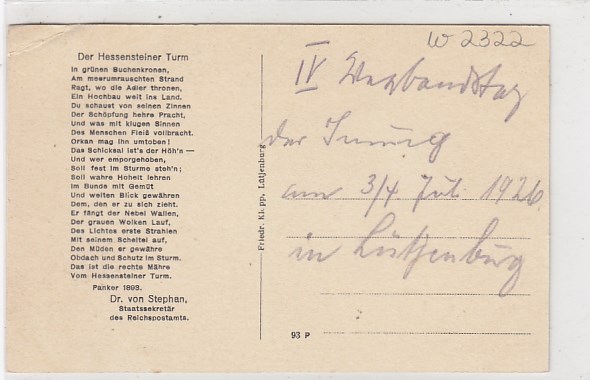 Der Hessensteiner Turm
In grünen Buchenkronen,
Am meerumrauschten Strand
Ragt, wo die Adler thronen,
Ein Hochbau weit ins Land.
Du schaust von seinen Zinnen
Der Schöpfung hehre Pracht,
Und was mit klugen Sinnen
Des Menschen Fleiß vollbracht.
Orkan mag ihn umtoben!
Das Schicksal ist's der Höh'n —
Und wer emporgehoben,
Soll fest im Sturme steh'n;
Soll wahre Hoheit lehren
Im Bunde mit Gemüt
Und weiten Blick gewähren
Dem, den er zu sich zieht.
Er fängt der Nebel Wallen,
Der grauen Wolken Lauf,
Des Lichtes erste Strahlen
Mit seinem Scheitel auf,
Den Müden er gewähre
Obdach und Schutz im Sturm.
Das ist die rechte Mähre
Vom Hessensteiner Turm.
Panker 1893.
Dr. von Stephan,
Staatssekretär
des Reichspostamts.
Friedr. Klopp, Lütjenburg
W 2322
IV Verbandstag
der Innung
am 3/4 Jul. 1926
in Lütjenburg
93 P